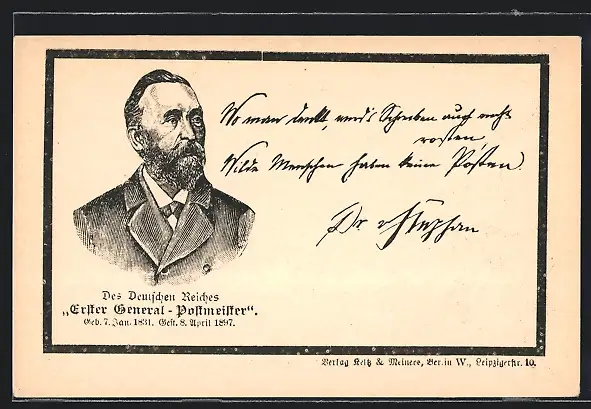 Wo man denkt, wird's Schreiben auch nicht
rosten,
Wilde Menschen haben keine Posten.
Dr. v Stephan
Des Deutschen Reiches
„Erster General-Postmeister“.
Geb. 7. Jan. 1831. Gest. 8. April 1897.
Verlag & Meiners, Berlin W., Leipzigerstr. 10.